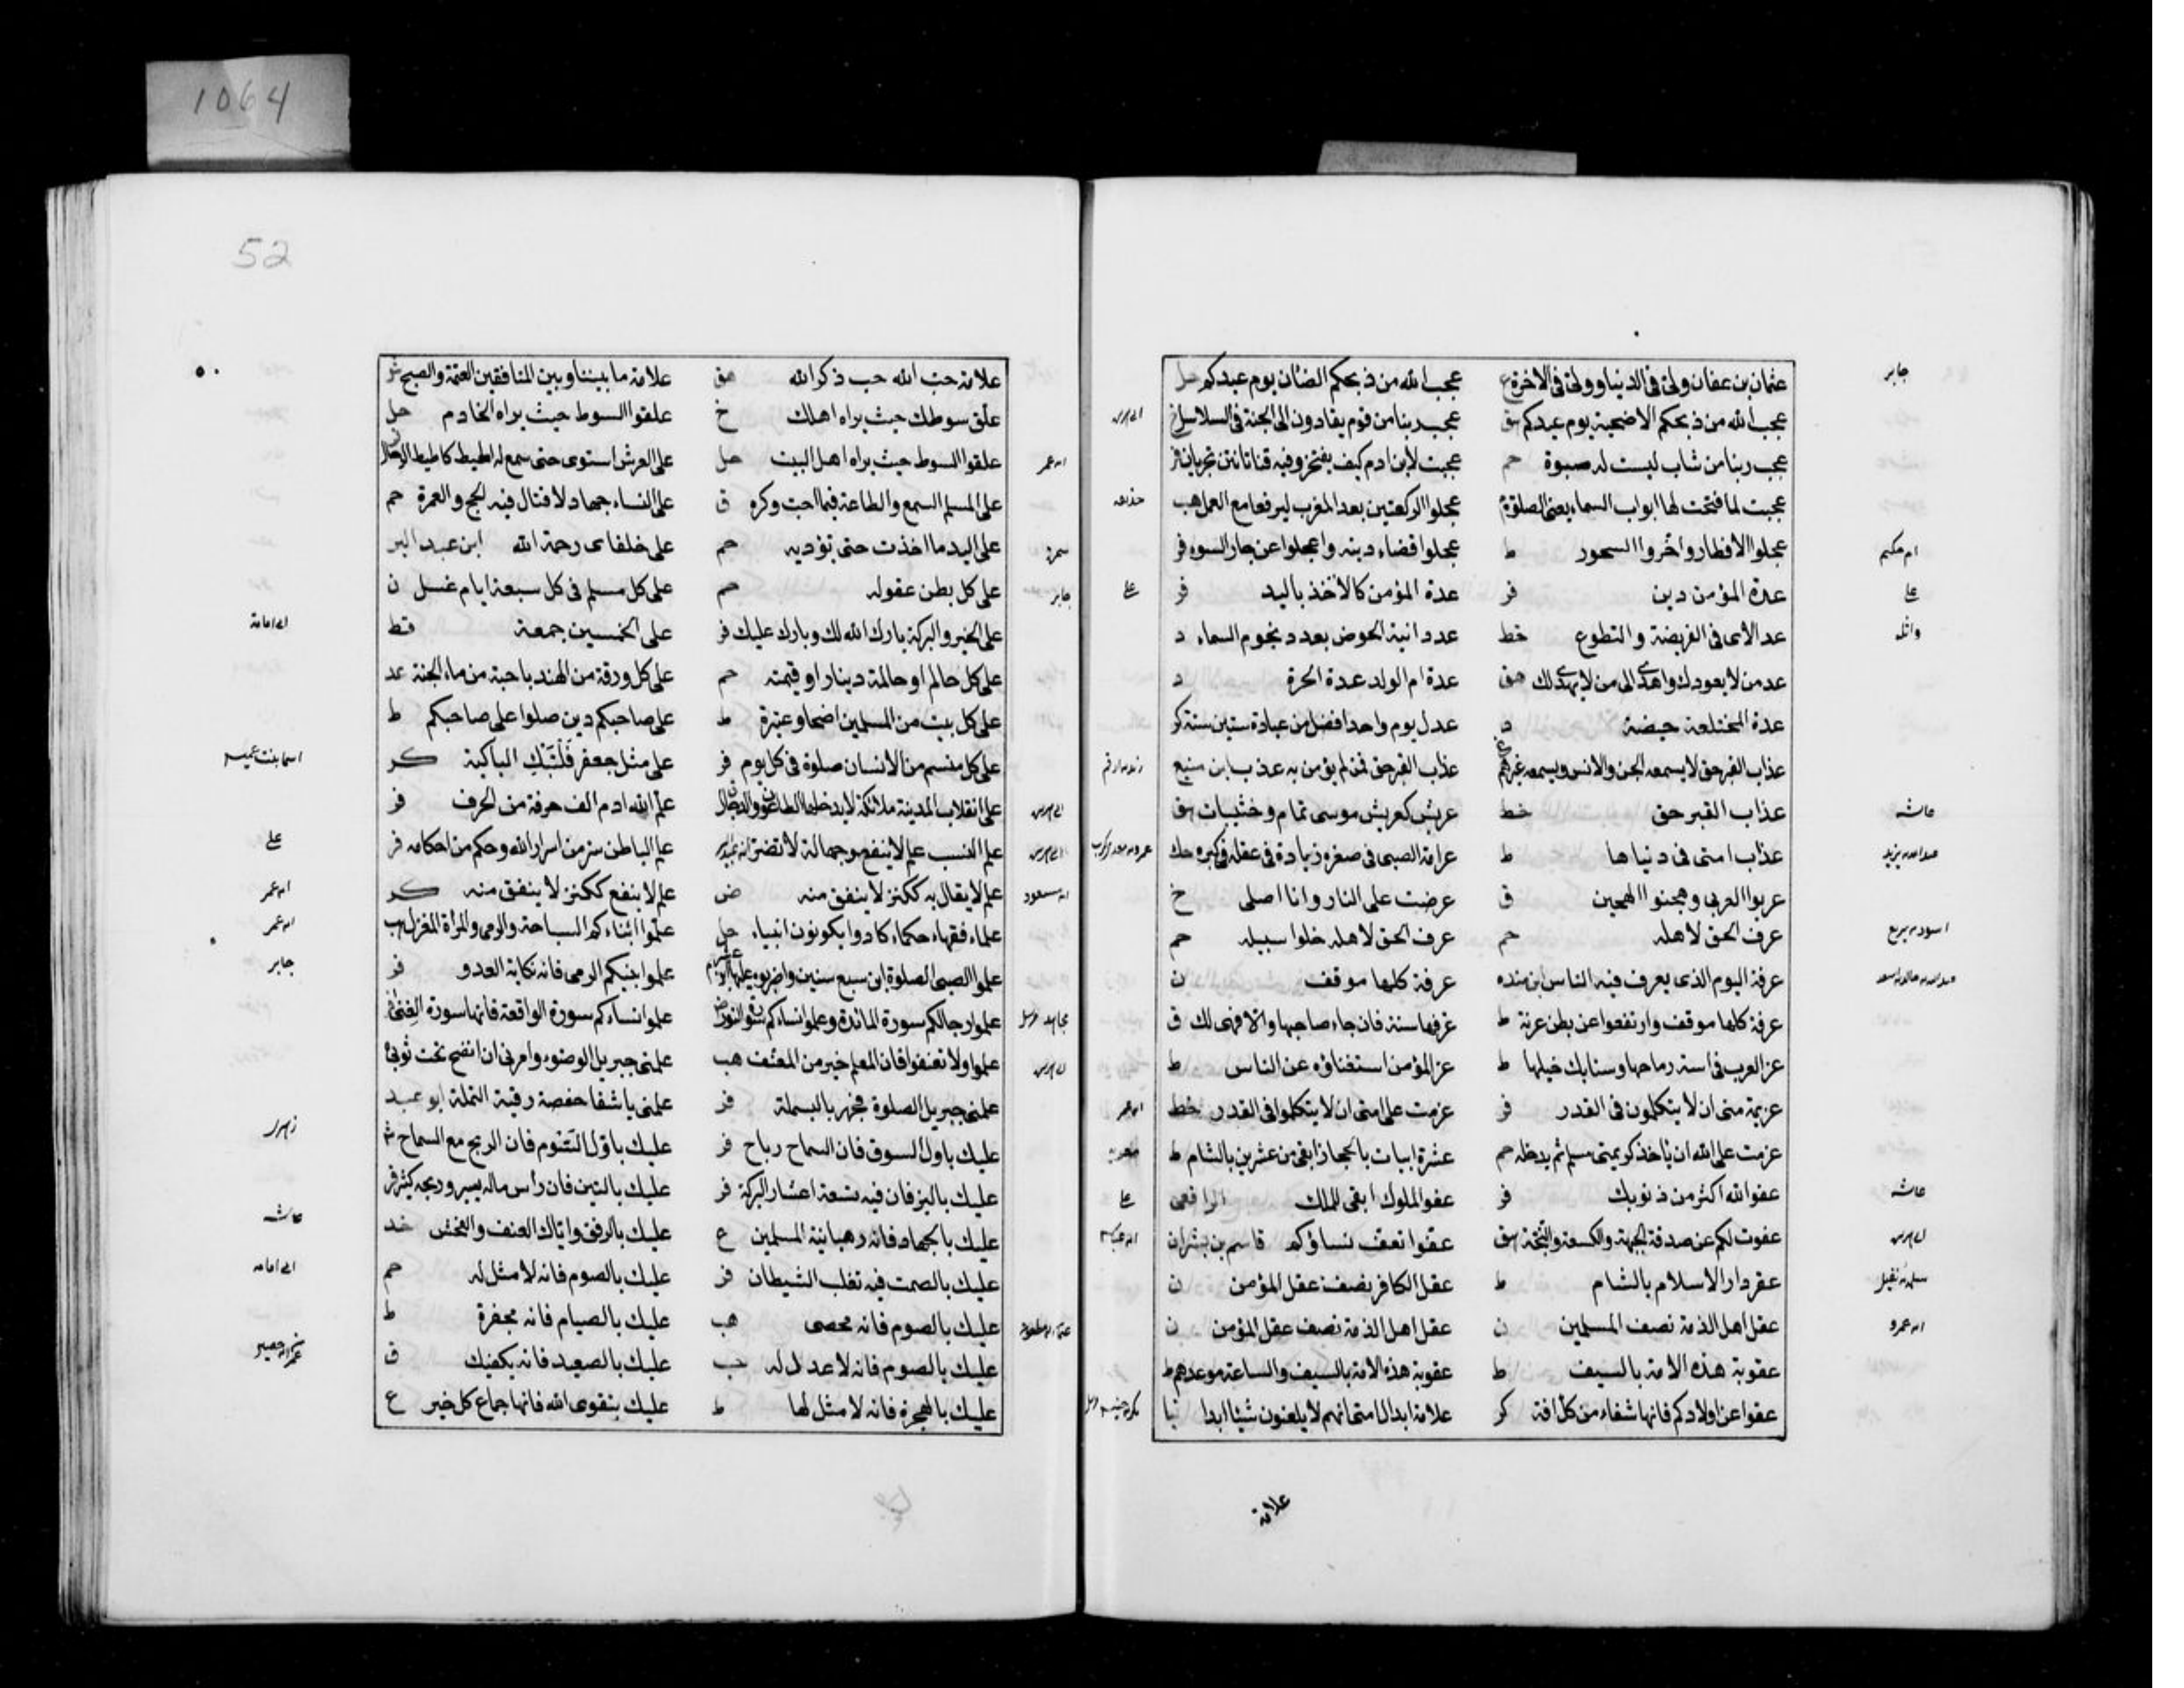 1064
52
جابر
عثمان بن عفان وليي في الدنيا ووليي في الاخرة ع عجب الله من ذبحكم الضان يوم عيدكم حل
عجب الله من ذبحكم الاضحية يوم عيدكم هق عجب ربنا من قوم يقادون الى الجنة في السلاسل خ
عجب ربنا من شاب ليست له صبوة حم عجبت لابن ادم كيف يفتخر وفيه قناتان تجريان فر
عجبت لها فتحت لها ابواب السماء يعني الصلوة م عجلوا الركعتين بعد المغرب ليرفعا مع العمل هب
حذيفة
عجلوا الافطار واخروا السحور ط عجلوا قضاء دينه واعجلوا عن جار السوء فر
ام حكيم
عدة المؤمن دين فر عدة المؤمن كالاخذ باليد فر
علي
علي
عد الآي في الفريضة والتطوع خط عدد انية الحوض بعدد نجوم السماء د
واثلة
عد من لا يعودك واهدي الى من لا يهدي لك هق عدة ام الولد عدة الحرة د
عدة المختلعة حيضة د عدل يوم واحد افضل من عبادة ستين سنة كر
عذاب القبر حق لا يسمعه الجن والانس ويسمعه غيرهم عذاب القبر حق فمن لم يؤمن به عذب ابن منيع
زيد بن ارقم
عذاب القبر حق خط عريش كعريش موسى تمام وخشيبات هق
عائشة
عذاب امتي في دنياها ط عرامة الصبي في صغره زيادة في عقله في كبره حك
عبدالله بن يزيد
عربوا العربي وهجنوا الهجين ق عرضت علي النار وانا اصلي خ
عرف الحق لاهله حم عرف الحق لاهله خلوا سبيله حم
اسود بن سريع
عرفة اليوم الذي يعرف فيه الناس ابن منده عرفة كلها موقف ن
عرفة كلها موقف وارتفعوا عن بطن عرنة ط عرفها سنة فان جاء صاحبها والا فهي لك ق
عز العرب في اسنة رماحها وسنابك خيلها ط عز المؤمن استغناؤه عن الناس ط
عزيمة مني ان لا يتكلمون في القدر فر عزمت على امتي ان لا يتكلموا في القدر خط
ابن عمر
عزمت على الله ان ياخذ كريمتي مسلم ثم يدخله حم عشرة ابيات بالحجاز ابقى من عشرين بالشام ط
معوية
عفو الله اكثر من ذنوبك فر عفو الملوك ابقى للملك الرافعي
عائشة
علي
عفوت لكم عن صدقة الجبهة والكسعة والنخة هق عفوا تعف نساؤكم قاسم بن بشران
ابن عباس
عقر دار الاسلام بالشام ط عقل الكافر نصف عقل المؤمن ن
سلمة بن نفيل
عقل اهل الذمة نصف المسلمين ن عقل اهل الذمة نصف عقل المؤمن ن
ابن عمرو
عقوبة هذه الامة بالسيف ط عقوبة هذه الامة بالسيف والساعة موعدهم ط
عقوا عن اولادكم فانها شفاء من كل افة كر علامة ابدال امتي انهم لا يلعنون شيئا ابدا نيا
علامة
علامة حب الله حب ذكر الله هق علامة ما بيننا وبين المنافقين العتمة والصبح ش
علق سوطك حيث يراه اهلك خ علقوا السوط حيث يراه الخادم حل
علقوا السوط حيث يراه اهل البيت حل على العرش استوى حتى سمع له اطيط كاطيط الرحال
ابن عمر
على المسلم السمع والطاعة فيما احب وكره ق على النساء جهاد لا قتال فيه الحج والعمرة حم
على اليد ما اخذت حتى تؤديه حم على خلفاى رحمة الله ابن عبد البر
سمرة
على كل بطن عقوله حم على كل مسلم في كل سبعة ايام غسل ن
جابر
على الخير والبركة بارك الله لك وبارك عليك فر على الخمسين جمعة قط
ابي امامة
على كل حالم او حالمة دينار او قيمته حم على كل ورقة من الهندبا حبة من ماء الجنة عد
على كل بيت من المسلمين اضحا وعتيرة ط على صاحبكم دين صلوا على صاحبكم ط
على كل منسم من الانسان صلوة في كل يوم فر على مثل جعفر فلتبك الباكية كر
اسما بنت عميس
على انقلاب المدينة ملائكة لا يدخلها الطاعون والدجال علم الله ادم الف حرفة من الحرف فر
علم النسب علم لا ينفع وجهالة لا تضر ابن عبد البر علم الباطن سر من اسرار الله وحكم من احكامه فر
علي
علم لا يقال به ككنز لا ينفق منه ض علم لا ينفع ككنز لا ينفق منه كر
ابن مسعود
ابن عمر
علماء فقهاء حكماء كادوا يكونون انبياء حل علموا ابناءكم السباحة والرمي والمراة المغزل هب
ابن عمر
علموا الصبي الصلوة ابن سبع سنين واضربوه عليها ابن عشر علموا بنيكم الرمي فانه نكاية العدو فر
جابر
علموا رجالكم سورة المائدة وعلموا نساءكم سورة النور ض علموا نساءكم سورة الواقعة فانها سورة الغنى
علموا ولا تعنفوا فان المعلم خير من المعنف هب علمني جبريل الوضوء وامرني ان انضح تحت ثوبي
علمني جبريل الصلوة فجهر بالبسملة فر علمني يا شفا حفصة رقية النملة ابو عبيد
عليك باول السوق فان السماح رباح فر عليك باول السوم فان الربح مع السماح ش
عليك بالبز فان فيه تسعة اعشار البركة فر عليك بالتين فان راس ماله يسير وربحه كثير فر
عليك بالجهاد فانه رهبانية المسلمين ع عليك بالرفق واياك العنف والفحش خد
عائشة
عليك بالصمت فبه تغلب الشيطان فر عليك بالصوم فانه لا مثل له حم
ابي امامه
عليك بالصوم فانه محصى هب عليك بالصيام فانه مجفرة ط
عليك بالصوم فانه لا عدل له حب عليك بالصعيد فانه يكفيك ق
عليك بالهجرة فانه لا مثل لها ط عليك بتقوى الله فانها جماع كل خير ع